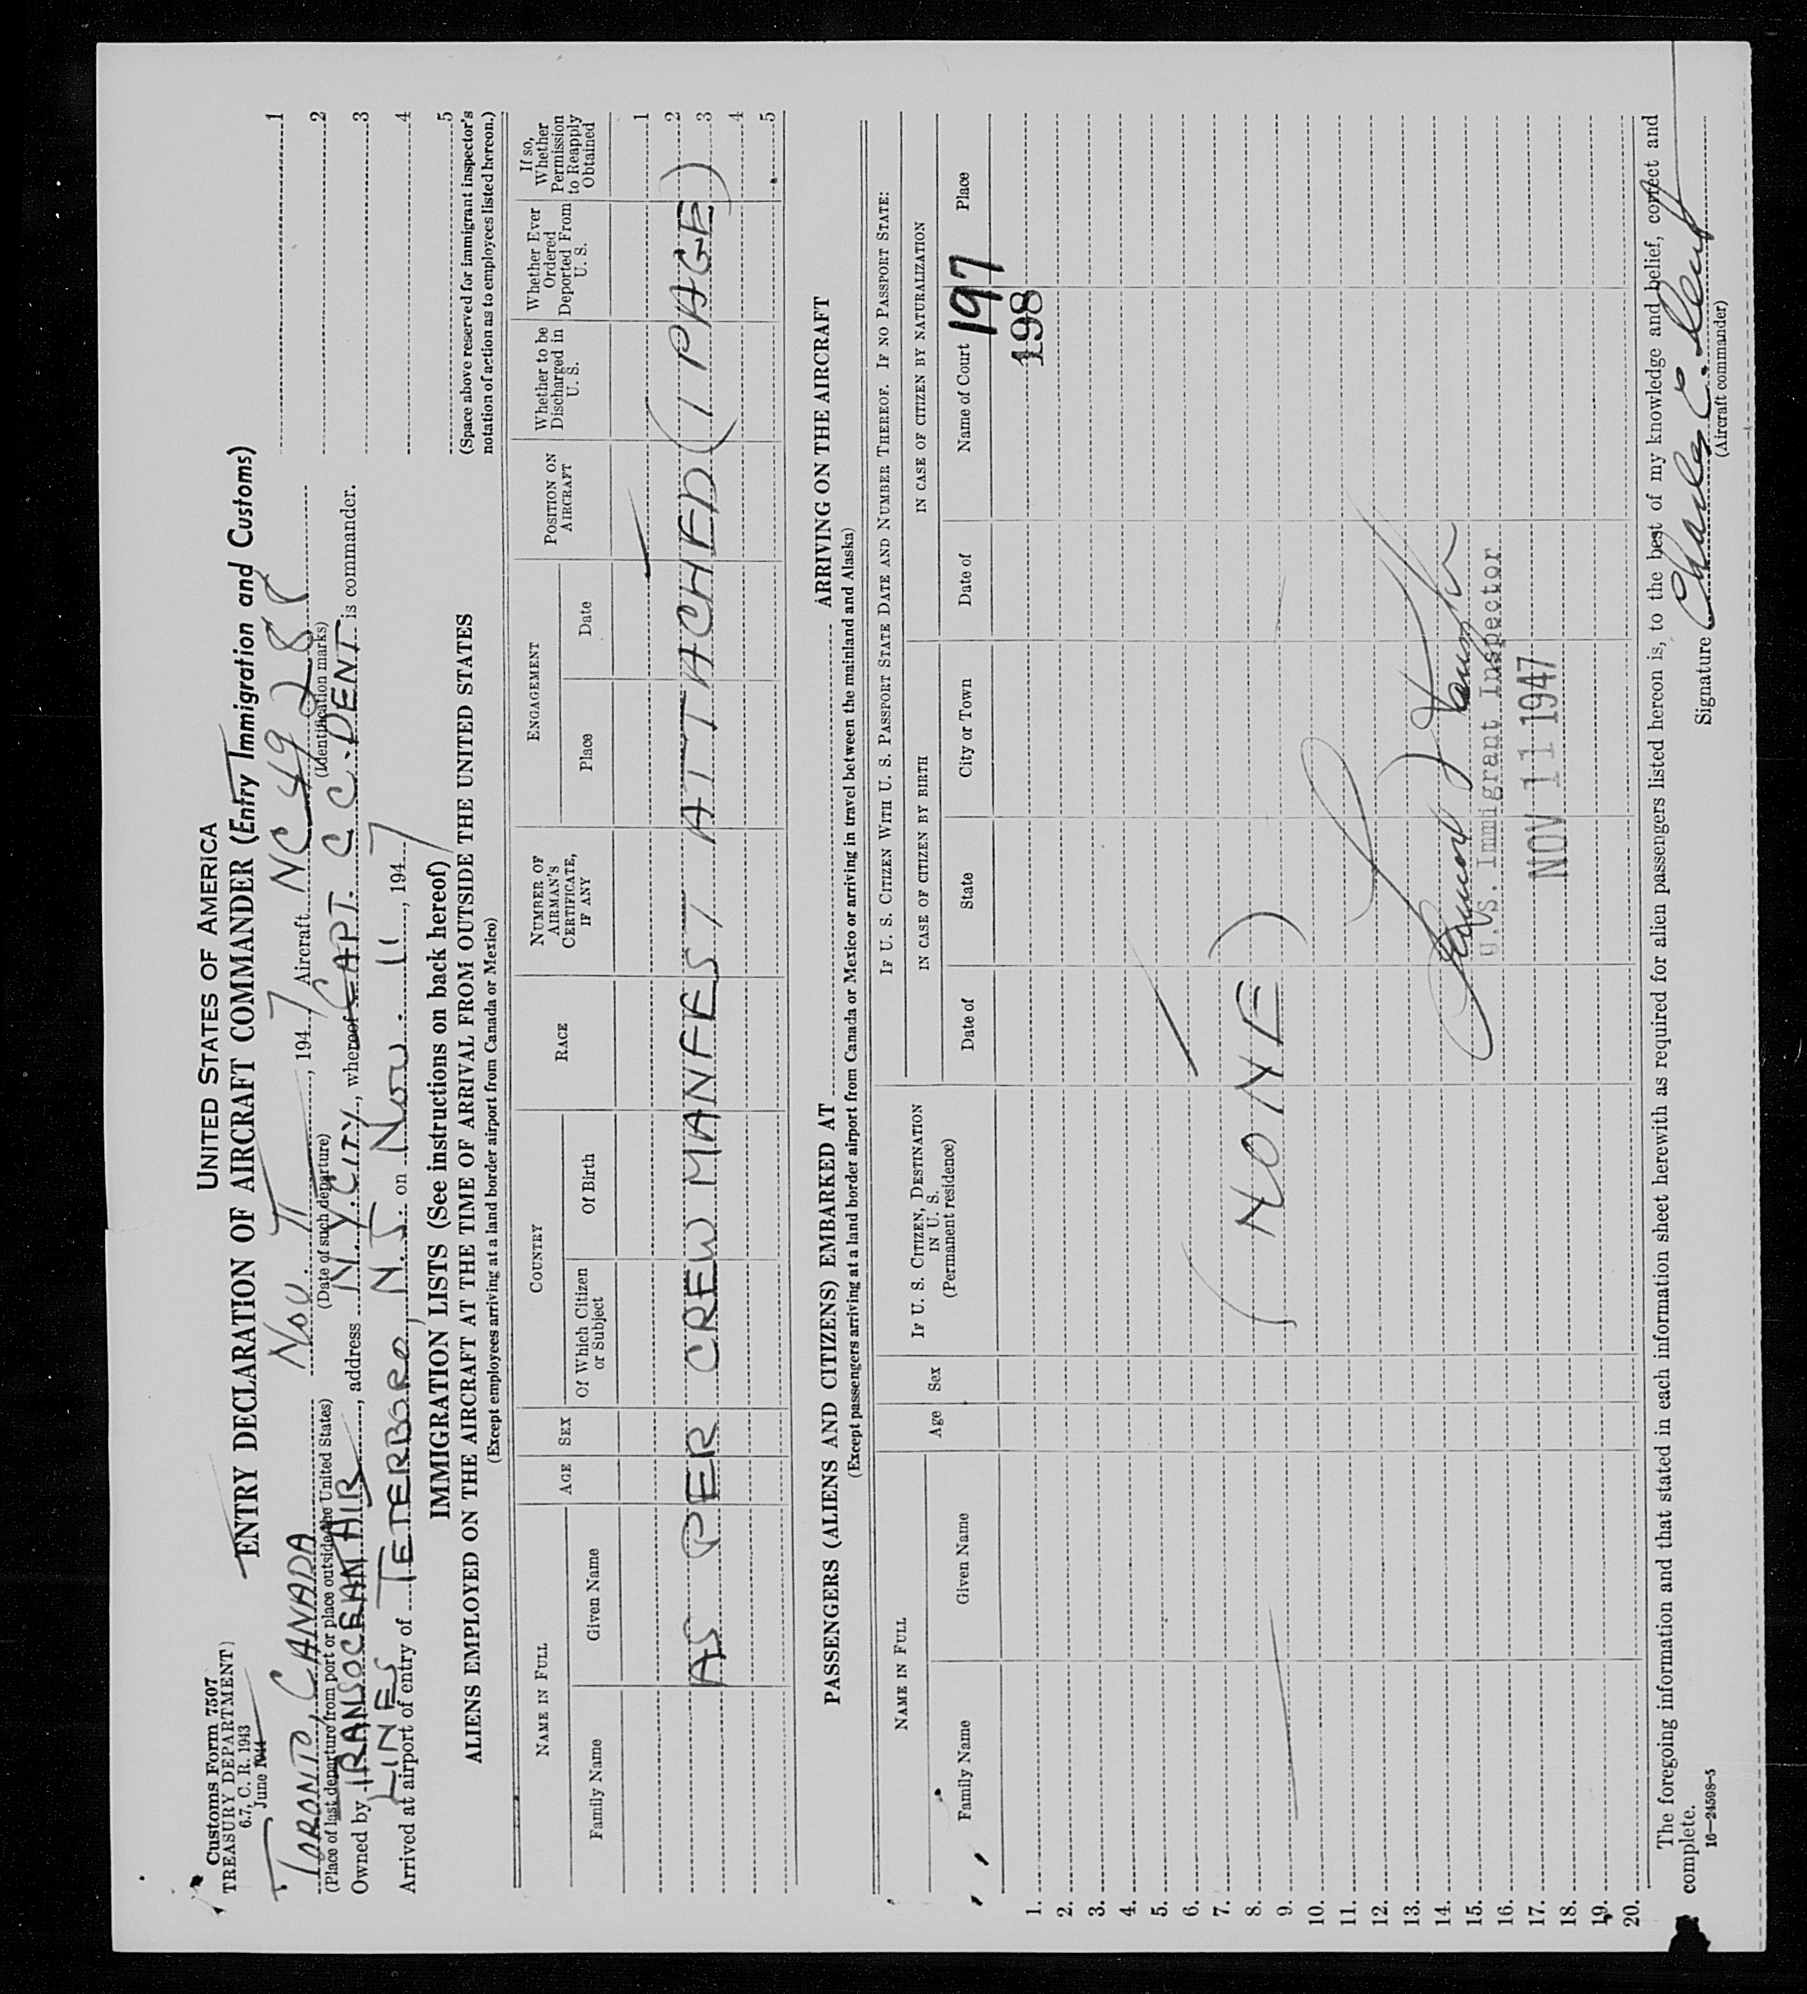 Customs Form 7507
TREASURY DEPARTMENT
6.7, C. R. 1943
June 1944
UNITED STATES OF AMERICA
ENTRY DECLARATION OF AIRCRAFT COMMANDER (Entry Immigration and Customs)
TORONTO, CANADA Nov. 11, 1947 Aircraft NC 49288
(Place of last departure from port or place outside the United States) (Date of such departure) (Identification marks)
Owned by TRANSOCEAN AIR LINES, address N.Y. CITY, whereof CAPT. C C. DENT is commander.
Arrived at airport of entry of TETERBORO, N.J. on Nov. 11, 1947
1
2
3
4
5
(Space above reserved for immigrant inspector's
notation of action as to employees listed hereon.)
IMMIGRATION LISTS (See instructions on back hereof)
ALIENS EMPLOYED ON THE AIRCRAFT AT THE TIME OF ARRIVAL FROM OUTSIDE THE UNITED STATES
(Except employees arriving at a land border airport from Canada or Mexico)
NAME IN FULL
Family Name
Given Name
AGE
SEX
COUNTRY
Of Which Citizen
or Subject
Of Birth
RACE
NUMBER OF
AIRMAN'S
CERTIFICATE,
IF ANY
ENGAGEMENT
Place
Date
POSITION ON
AIRCRAFT
Whether to be
Discharged in
U. S.
Whether Ever
Ordered
Deported From
U. S.
If so,
Whether
Permission
to Reapply
Obtained
1
2
3
4
5
AS PER CREW MANFEST ATTACHED (1 PAGE)
PASSENGERS (ALIENS AND CITIZENS) EMBARKED AT ARRIVING ON THE AIRCRAFT
(Except passengers arriving at a land border airport from Canada or Mexico or arriving in travel between the mainland and Alaska)
NAME IN FULL
Family Name
Given Name
Age
Sex
IF U. S. CITIZEN, DESTINATION
IN U. S.
(Permanent residence)
IF U. S. CITIZEN WITH U. S. PASSPORT STATE DATE AND NUMBER THEREOF. IF NO PASSPORT STATE:
IN CASE OF CITIZEN BY BIRTH
Date of
State
City or Town
IN CASE OF CITIZEN BY NATURALIZATION
Date of
Name of Court
Place
197
198
1.
2.
3.
4.
5.
6.
7.
8.
9.
10.
11.
12.
13.
14.
15.
16.
17.
18.
19.
20.
( NONE )
U.S. Immigrant Inspector
NOV 11 1947
The foregoing information and that stated in each information sheet herewith as required for alien passengers listed hereon is, to the best of my knowledge and belief, correct and
complete.
16—24598-5
Signature Charles C. Dent
(Aircraft commander)